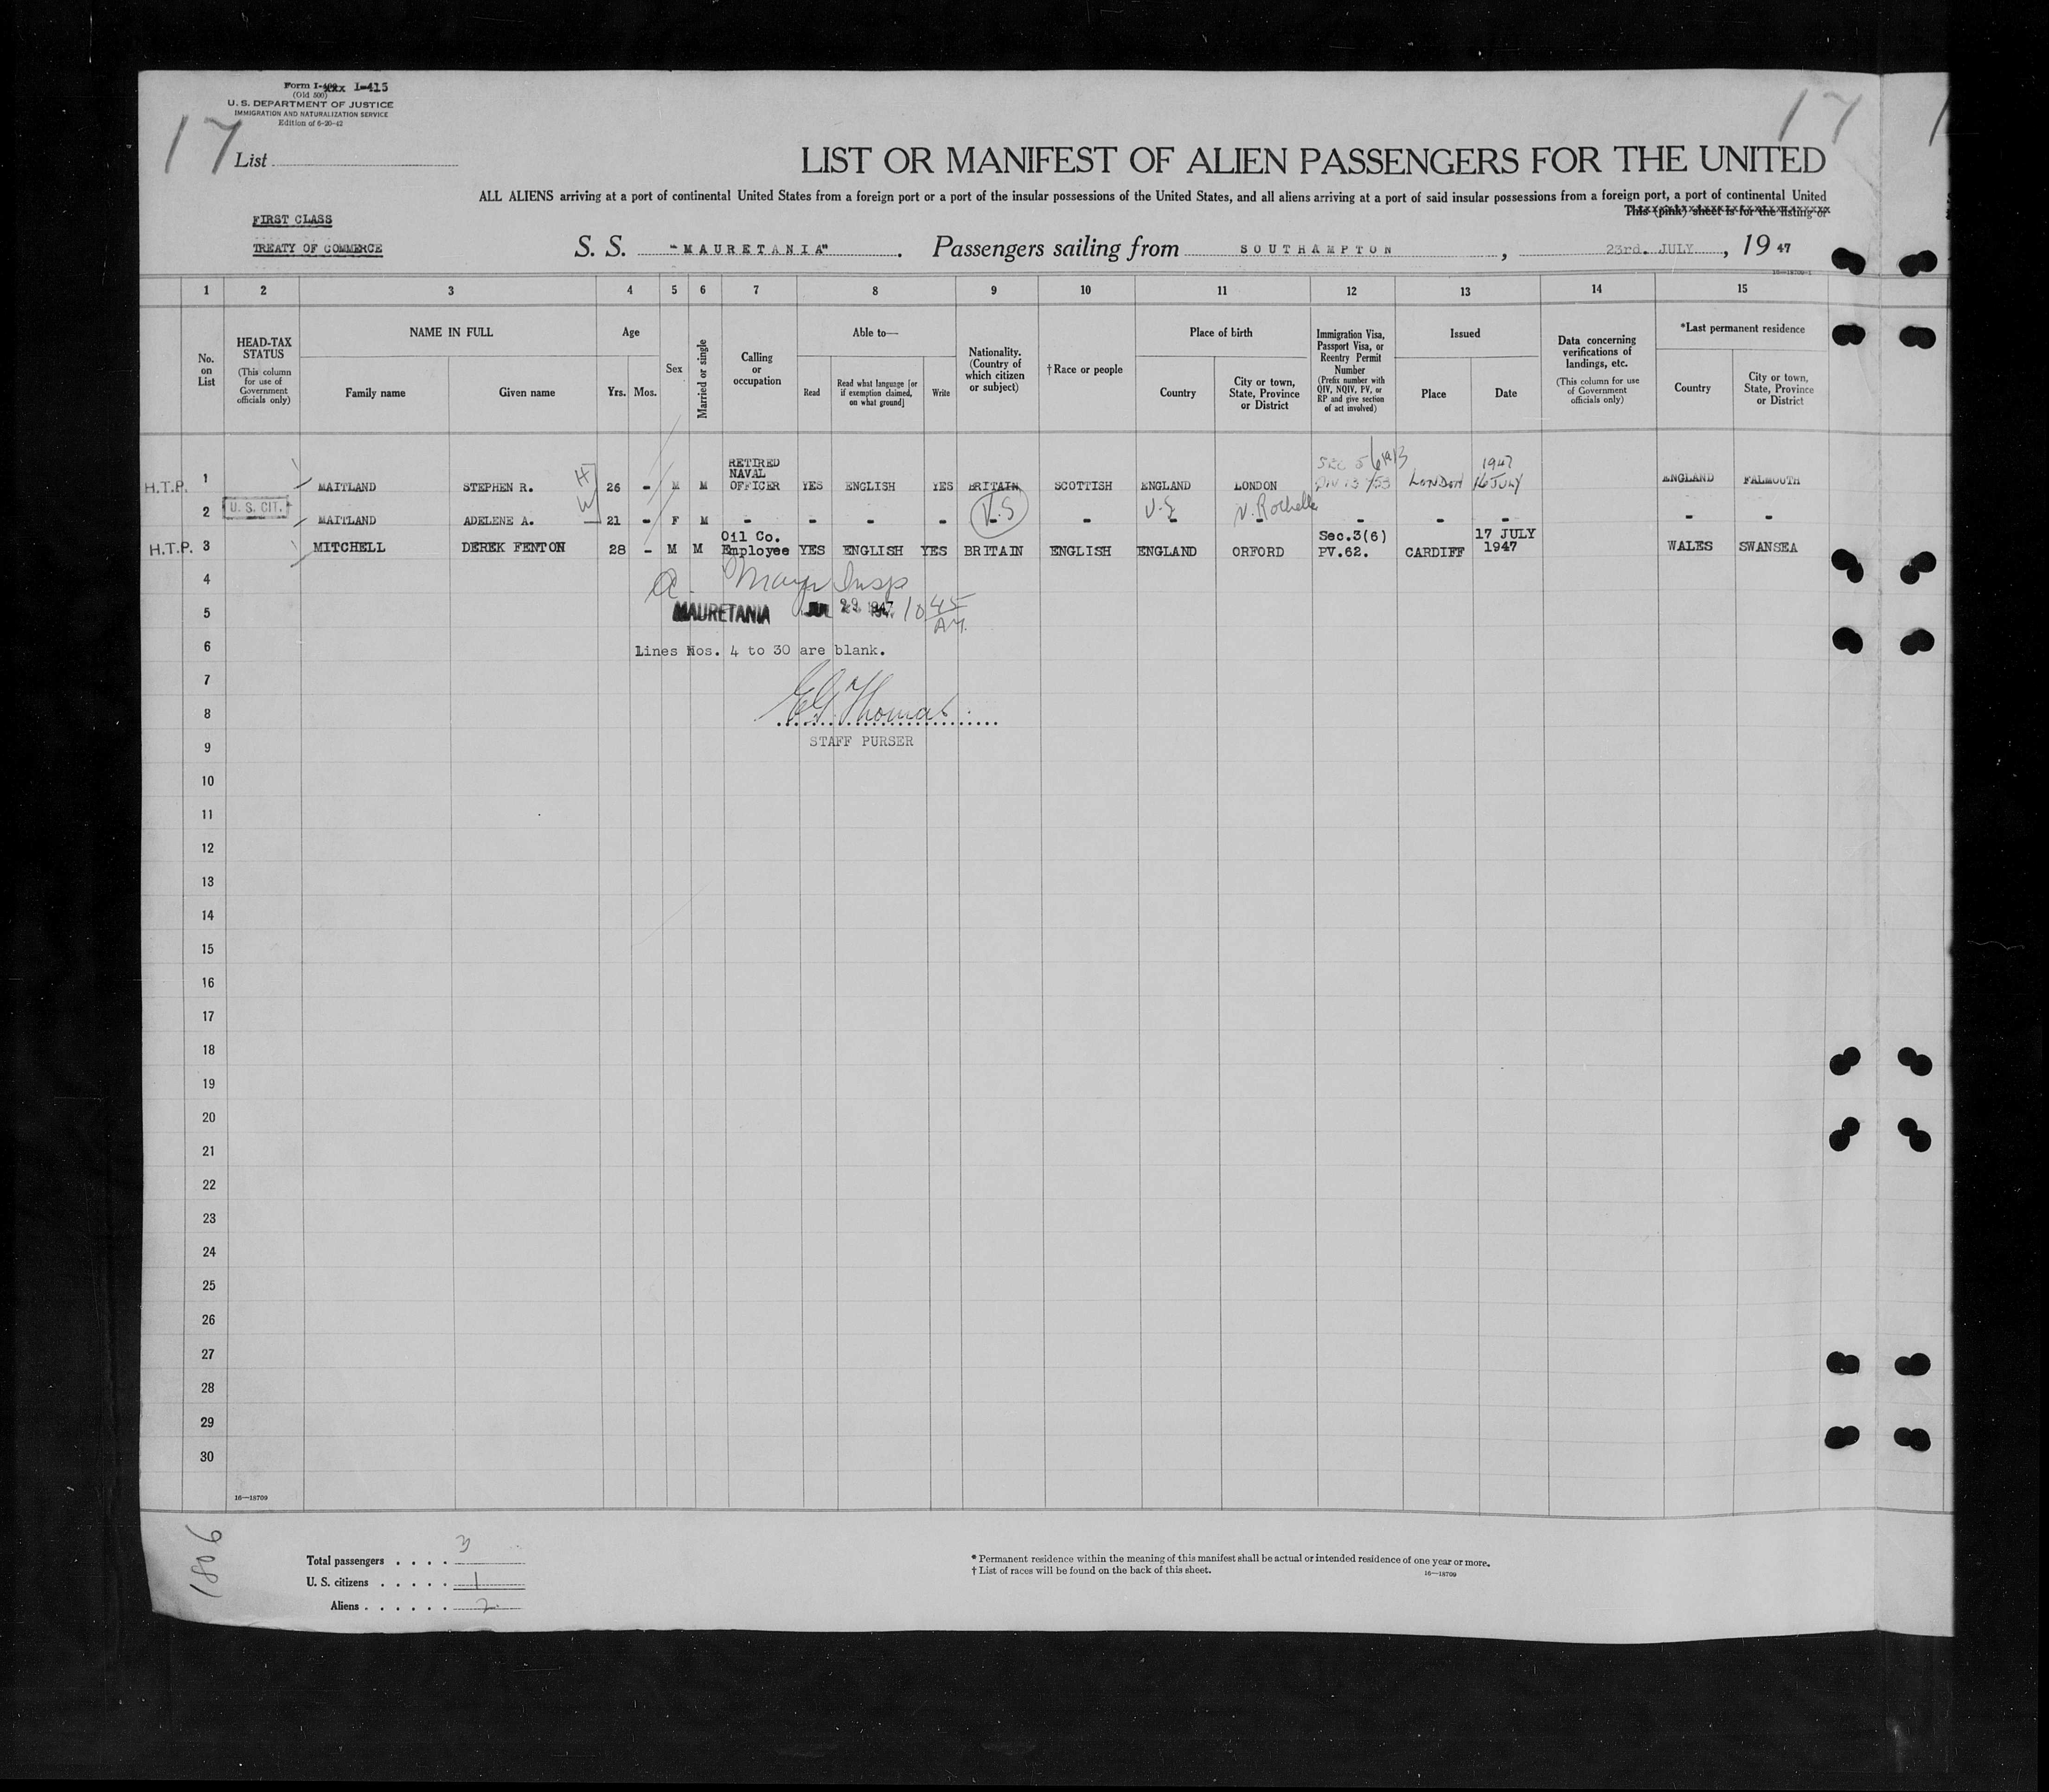 Form I-415
(Old 500)
U. S. DEPARTMENT OF JUSTICE
IMMIGRATION AND NATURALIZATION SERVICE
Edition of 6-20-42
17 List
17
LIST OR MANIFEST OF ALIEN PASSENGERS FOR THE UNITED
ALL ALIENS arriving at a port of continental United States from a foreign port or a port of the insular possessions of the United States, and all aliens arriving at a port of said insular possessions from a foreign port, a port of continental United
This (pink) sheet is for the listing of
FIRST CLASS
TREATY OF COMMERCE
S. S. "MAURETANIA". Passengers sailing from SOUTHAMPTON, 23rd. JULY, 19 47
16—18709-1
1 2 3 4 5 6 7 8 9 10 11 12 13 14 15
No. on List
HEAD-TAX STATUS (This column for use of Government officials only)
NAME IN FULL
Family name
Given name
Age
Yrs. Mos.
Sex
Married or single
Calling or occupation
Able to—
Read
Read what language [or if exemption claimed, on what ground]
Write
Nationality. (Country of which citizen or subject)
†Race or people
Place of birth
Country
City or town, State, Province or District
Immigration Visa, Passport Visa, or Reentry Permit Number (Prefix number with QIV, NQIV, PV, or RP and give section of act involved)
Issued
Place
Date
Data concerning verifications of landings, etc. (This column for use of Government officials only)
*Last permanent residence
Country
City or town, State, Province or District
H.T.P. 1 MAITLAND STEPHEN R. H 26 - M M RETIRED NAVAL OFFICER YES ENGLISH YES BRITAIN SCOTTISH ENGLAND LONDON LONDON 16 JULY 1947 ENGLAND FALMOUTH
2 U. S. CIT. MAITLAND ADELENE A. W 21 - F M - - - - U.S - U.S N. Rochelle - - - - -
H.T.P. 3 MITCHELL DEREK FENTON 28 - M M Oil Co. Employee YES ENGLISH YES BRITAIN ENGLISH ENGLAND ORFORD Sec.3(6) PV.62. CARDIFF 17 JULY 1947 WALES SWANSEA
4
5 MAURETANIA JUL 29 1947 10 45 AM.
6 Lines Nos. 4 to 30 are blank.
7
8 EG Thomas
9 STAFF PURSER
10
11
12
13
14
15
16
17
18
19
20
21
22
23
24
25
26
27
28
29
30
16—18709
1806
Total passengers . . . . 3
U. S. citizens . . . . . 1
Aliens . . . . . . 2
* Permanent residence within the meaning of this manifest shall be actual or intended residence of one year or more.
† List of races will be found on the back of this sheet.
16—18709